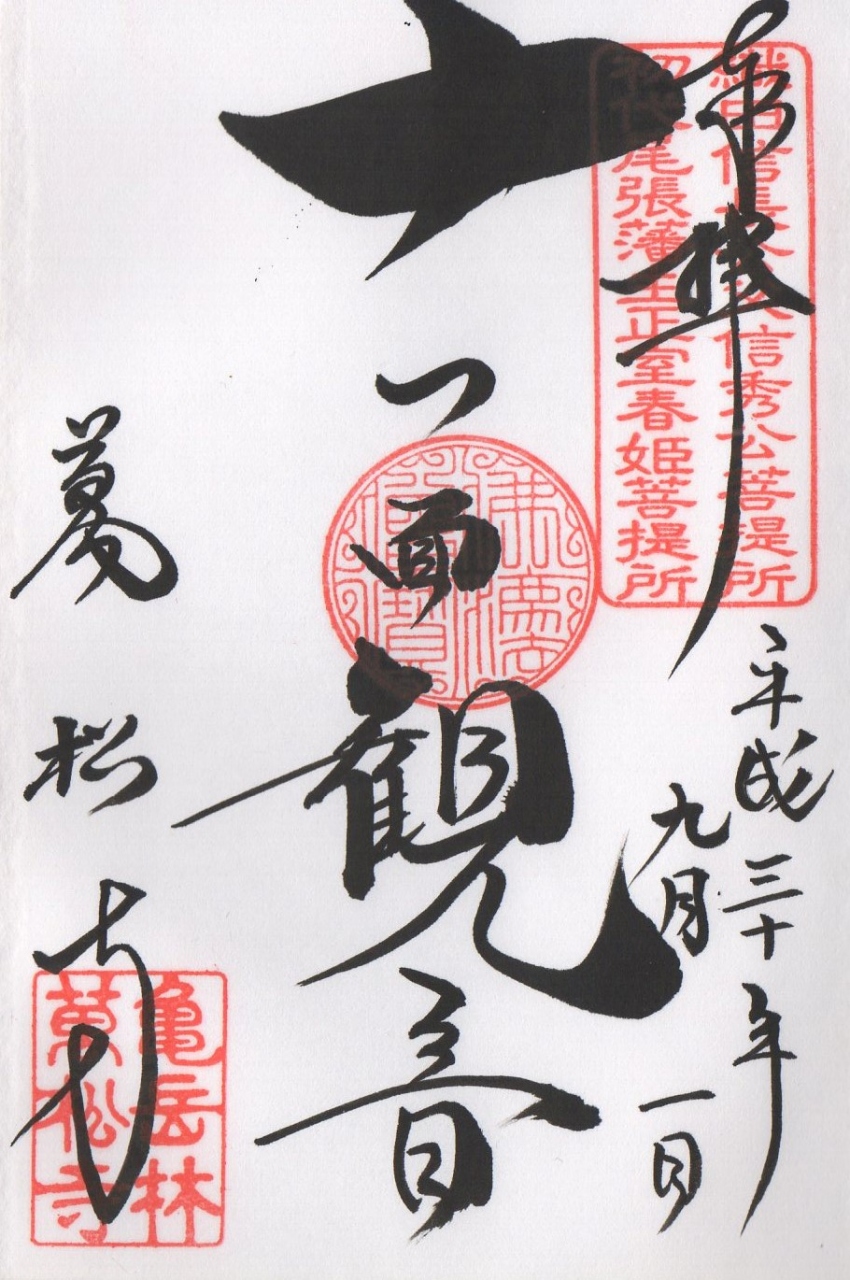 奉拝
織田信長公父信秀公菩提所
初代尾張藩主正室春姫菩提所
平成三十年
九月一日
十一面観音
佛法僧寶
萬松寺
亀岳林
萬松寺